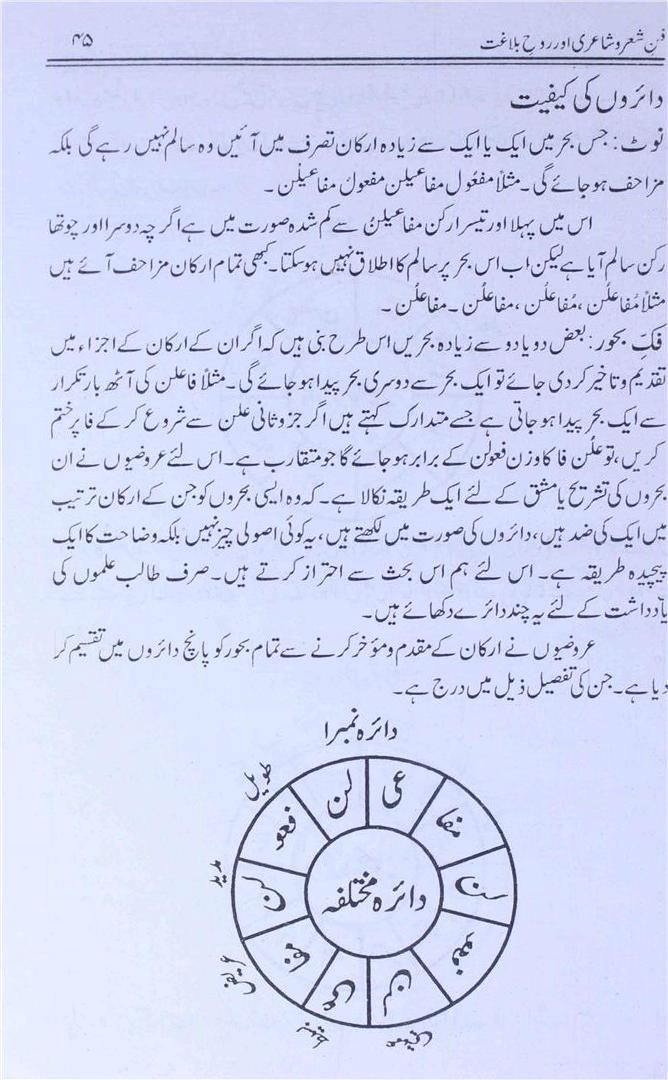 فن شعر و شاعری اور روح بلاغت
۴۵
دائروں کی کیفیت
نوٹ: جس بحر میں ایک یا ایک سے زیادہ ارکان تصرف میں آئیں وہ سالم نہیں رہے گی بلکہ
مزاحف ہو جائے گی۔ مثلاً مفعُول مفاعیلن مفعولُ مفاعیلُن۔
اس میں پہلا اور تیسرا رکن مفاعیلنُ سے کم شدہ صورت میں ہے اگرچہ دوسرا اور چوتھا
رکن سالم آیا ہے لیکن اب اس بحر پر سالم کا اطلاق نہیں ہو سکتا۔ کبھی تمام ارکان مزاحف آئے ہیں
مثلاً مُفاعلُن، مُفاعلُن، مفاعلُن۔ مفاعلُن۔
فکِّ بحور: بعض دو یا دو سے زیادہ بحریں اس طرح بنی ہیں کہ اگر ان کے ارکان کے اجزاء میں
تقدیم و تاخیر کر دی جائے تو ایک بحر سے دوسری بحر پیدا ہو جائے گی۔ مثلاً فاعلن کی آٹھ بار تکرار
سے ایک بحر پیدا ہو جاتی ہے جسے متدارک کہتے ہیں اگر جزو ثانی علن سے شروع کر کے فا پر ختم
کریں، تو علُن فا کا وزن فعولن کے برابر ہو جائے گا جو متقارب ہے۔ اس لئے عروضیوں نے ان
بحروں کی تشریح یا مشق کے لئے ایک طریقہ نکالا ہے۔ کہ وہ ایسی بحروں کو جن کے ارکان ترتیب
میں ایک کی ضد ہیں، دائروں کی صورت میں لکھتے ہیں، یہ کوئی اصولی چیز نہیں بلکہ وضاحت کا ایک
پیچیدہ طریقہ ہے۔ اس لئے ہم اس بحث سے احتراز کرتے ہیں۔ صرف طالب علموں کی
یادداشت کے لئے یہ چند دائرے دکھائے ہیں۔
عروضیوں نے ارکان کے مقدم و مؤخر کرنے سے تمام بحور کو پانچ دائروں میں تقسیم کر
دیا ہے۔ جن کی تفصیل ذیل میں درج ہے۔
دائرہ نمبرا
طویل
مدید
عریض
دائرہ مختلفہ
فعو
لن
مفا
عی
لن
فعو
لن
مفا
عی
لن